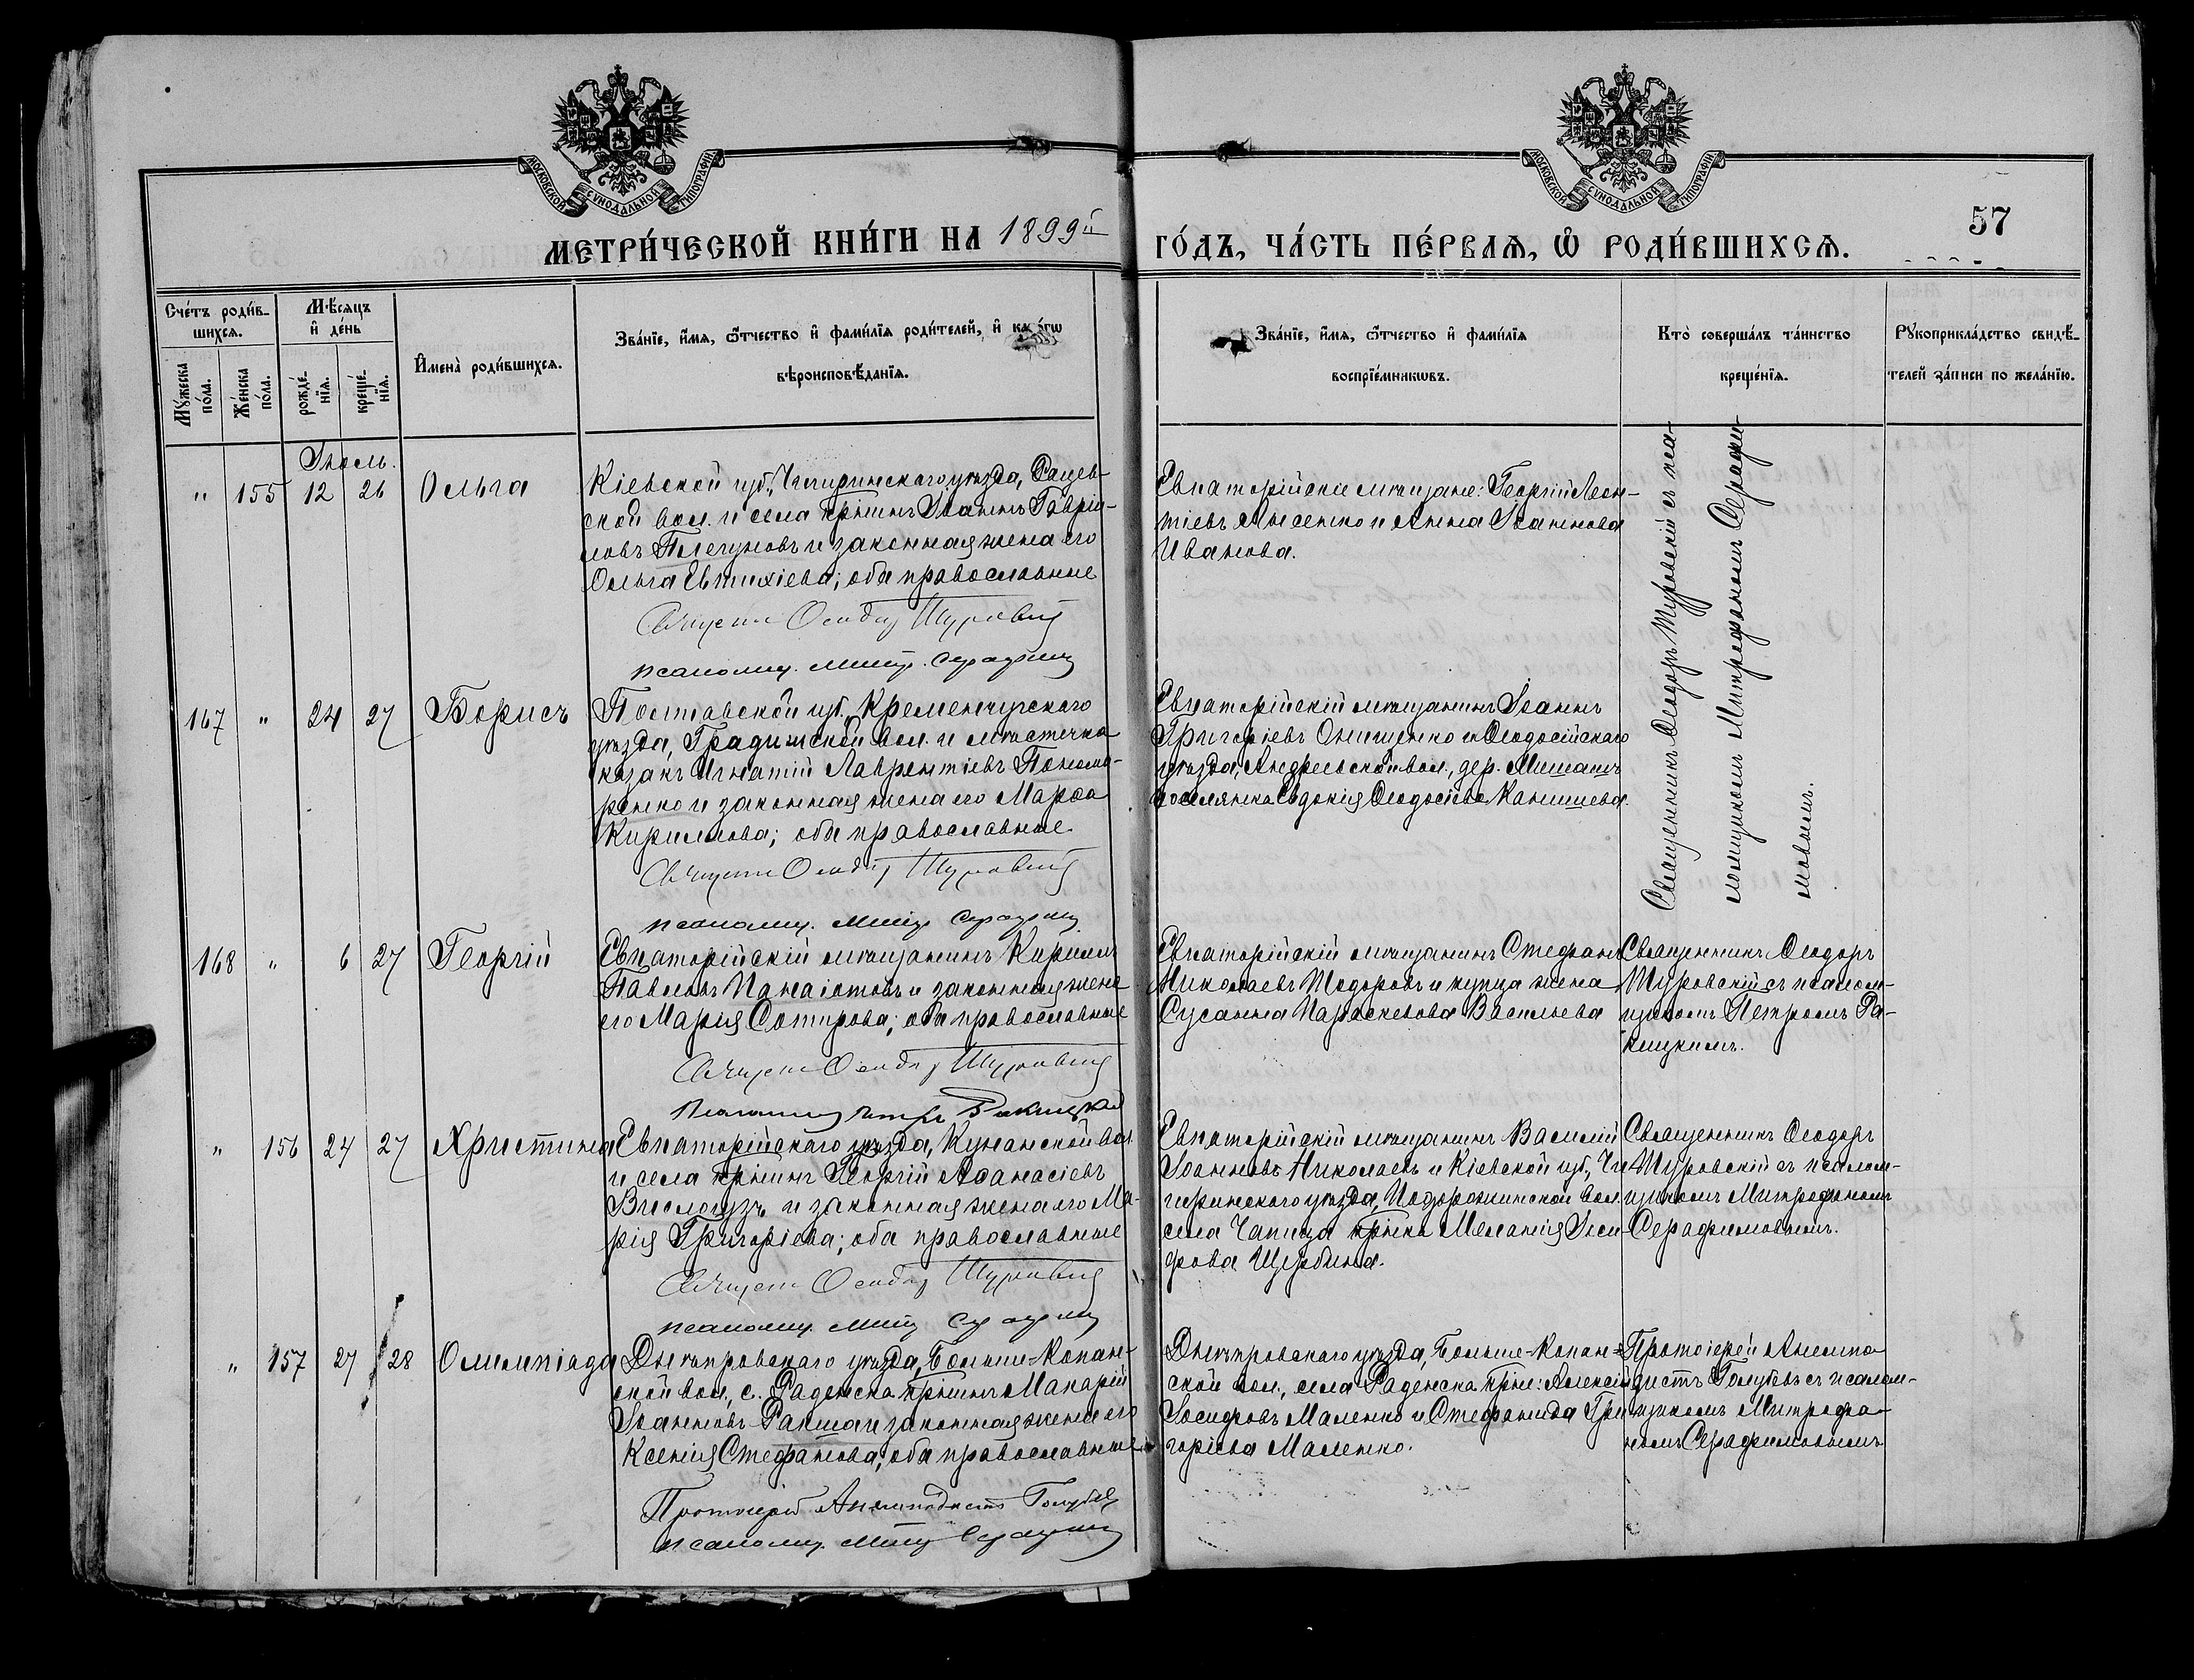 МОСКОВСКОЙ СѴНОДАЛЬНОЙ ТИПОГРАФІИ
МОСКОВСКОЙ СѴНОДАЛЬНОЙ ТИПОГРАФІИ
57
МЕТРИ́ЧЕСКОЙ КНИ́ГИ НА 1899й ГО́ДЪ, ЧА́СТЬ ПЕ́РВАѦ, Ѽ РОДИ́ВШИХСѦ.
Сче́тъ роди́в-
шихсѧ.
Мꙋ́жеска
по́ла.
Же́нска
по́ла.
Мѣ́сѧцъ
и҆ де́нь
рожде́-
нїѧ.
креще́-
нїѧ.
И҆мена̀ роди́вшихсѧ.
Зва́нїе, и҆́мѧ, ѻ҆́тчество и҆ фами́лїѧ роди́телей, и҆ како́гѡ
вѣроисповѣ́данїѧ.
Зва́нїе, и҆́мѧ, ѻ҆́тчество и҆ фами́лїѧ
воспрїе́мникѡвъ.
Кто̀ соверша́лъ та́инство
креще́нїѧ.
Рꙋкоприкла́дство свидѣ́-
телей за́писи по жела́нїю.
Іюль.
" 155 12 26 Ольга
Кіевской губ., Чигиринскаго уѣзда, Рацев-
ской вол. и села крнинъ Іоаннъ Гаврiи-
ловъ и законная жена его
Ольга Евтихіева; оба православные
Священ Ѳеодор Туровскій
псаломщ. Митр. Серафим
Евпаторійскіе мѣщане: Георгій Леон-
тіевъ Лысенко и Анна Іоаннова
Иванова.
Священникъ Ѳеодоръ Туровскій съ пса-
ломщикомъ Митрофаномъ Серафи-
мовымъ.
167 " 24 27 Борисъ
Полтавской губ., Кременчугского
уѣзда, Градижской вол. и мѣстечка
казакъ Игнатій Лаврентіевъ Понома-
ренко и законная жена его Марѳа
Кириллова; оба православные
Священ Ѳеодор Туровскій
псаломщ. Митр Серафим
Евпаторійскій мѣщанинъ Іоаннъ
Григоріевъ Онищенко и Ѳеодосійскаго
уѣзда, Андреевской вол., дер.
поселянка Евдокія Ѳеодосіева Канищева.
168 " 6 27 Георгій
Евпаторійскій мѣщанинъ Кириллъ
Павловъ Панаіотовъ и законная жена
его Марія Сотирова; оба православные
Священ Ѳеодор Туровскій
Псаломщ Петръ Ракицкій
Евпаторійскій мѣщанинъ Стефанъ
Николаевъ Тодоровъ и купца жена
Сусанна Параскевова Васильева
Священникъ Ѳеодоръ
Туровскій съ псалом-
щикомъ Петромъ Ра-
кицкимъ.
" 156 24 27 Христина
Евпаторійскаго уѣзда, Кунанской вол.
и села крнинъ Георгій Аѳанасіевъ
Вислогузъ и законная жена его Ма-
рія Григоріева; оба православные
Священ Ѳеодор Туровскій
псаломщ. Митр Серафим
Евпаторійскій мѣщанинъ Василій
Іоанновъ Николаевъ и Кіевской губ., Чи-
гиринскаго уѣзда, Подорожинской вол.
села Чапица крнка Меланія Іоси-
фова Щербина.
Священникъ Ѳеодоръ
Туровскій съ псалом-
щикомъ Митрофаномъ
Серафимовымъ.
" 157 27 28 Олимпіада
Днѣпровскаго уѣзда, Больше-Копан-
ской вол., с. Раденска крнинъ Макарій
Іоанновъ Ракша и законная жена его
Ксенія Стефанова; оба православные
Протоіерей Анемподистъ Голубѣвъ
псаломщ. Митр Серафим
Днѣпровскаго уѣзда, Больше-Копан-
ской вол., села Раденска крне: Алексій
Іосифовъ Маленко и Стефанида Гри-
горіева Маленко.
Протоіерей Анемпо-
дистъ Голубѣвъ съ псалом-
щикомъ Митрофа-
номъ Серафимовымъ